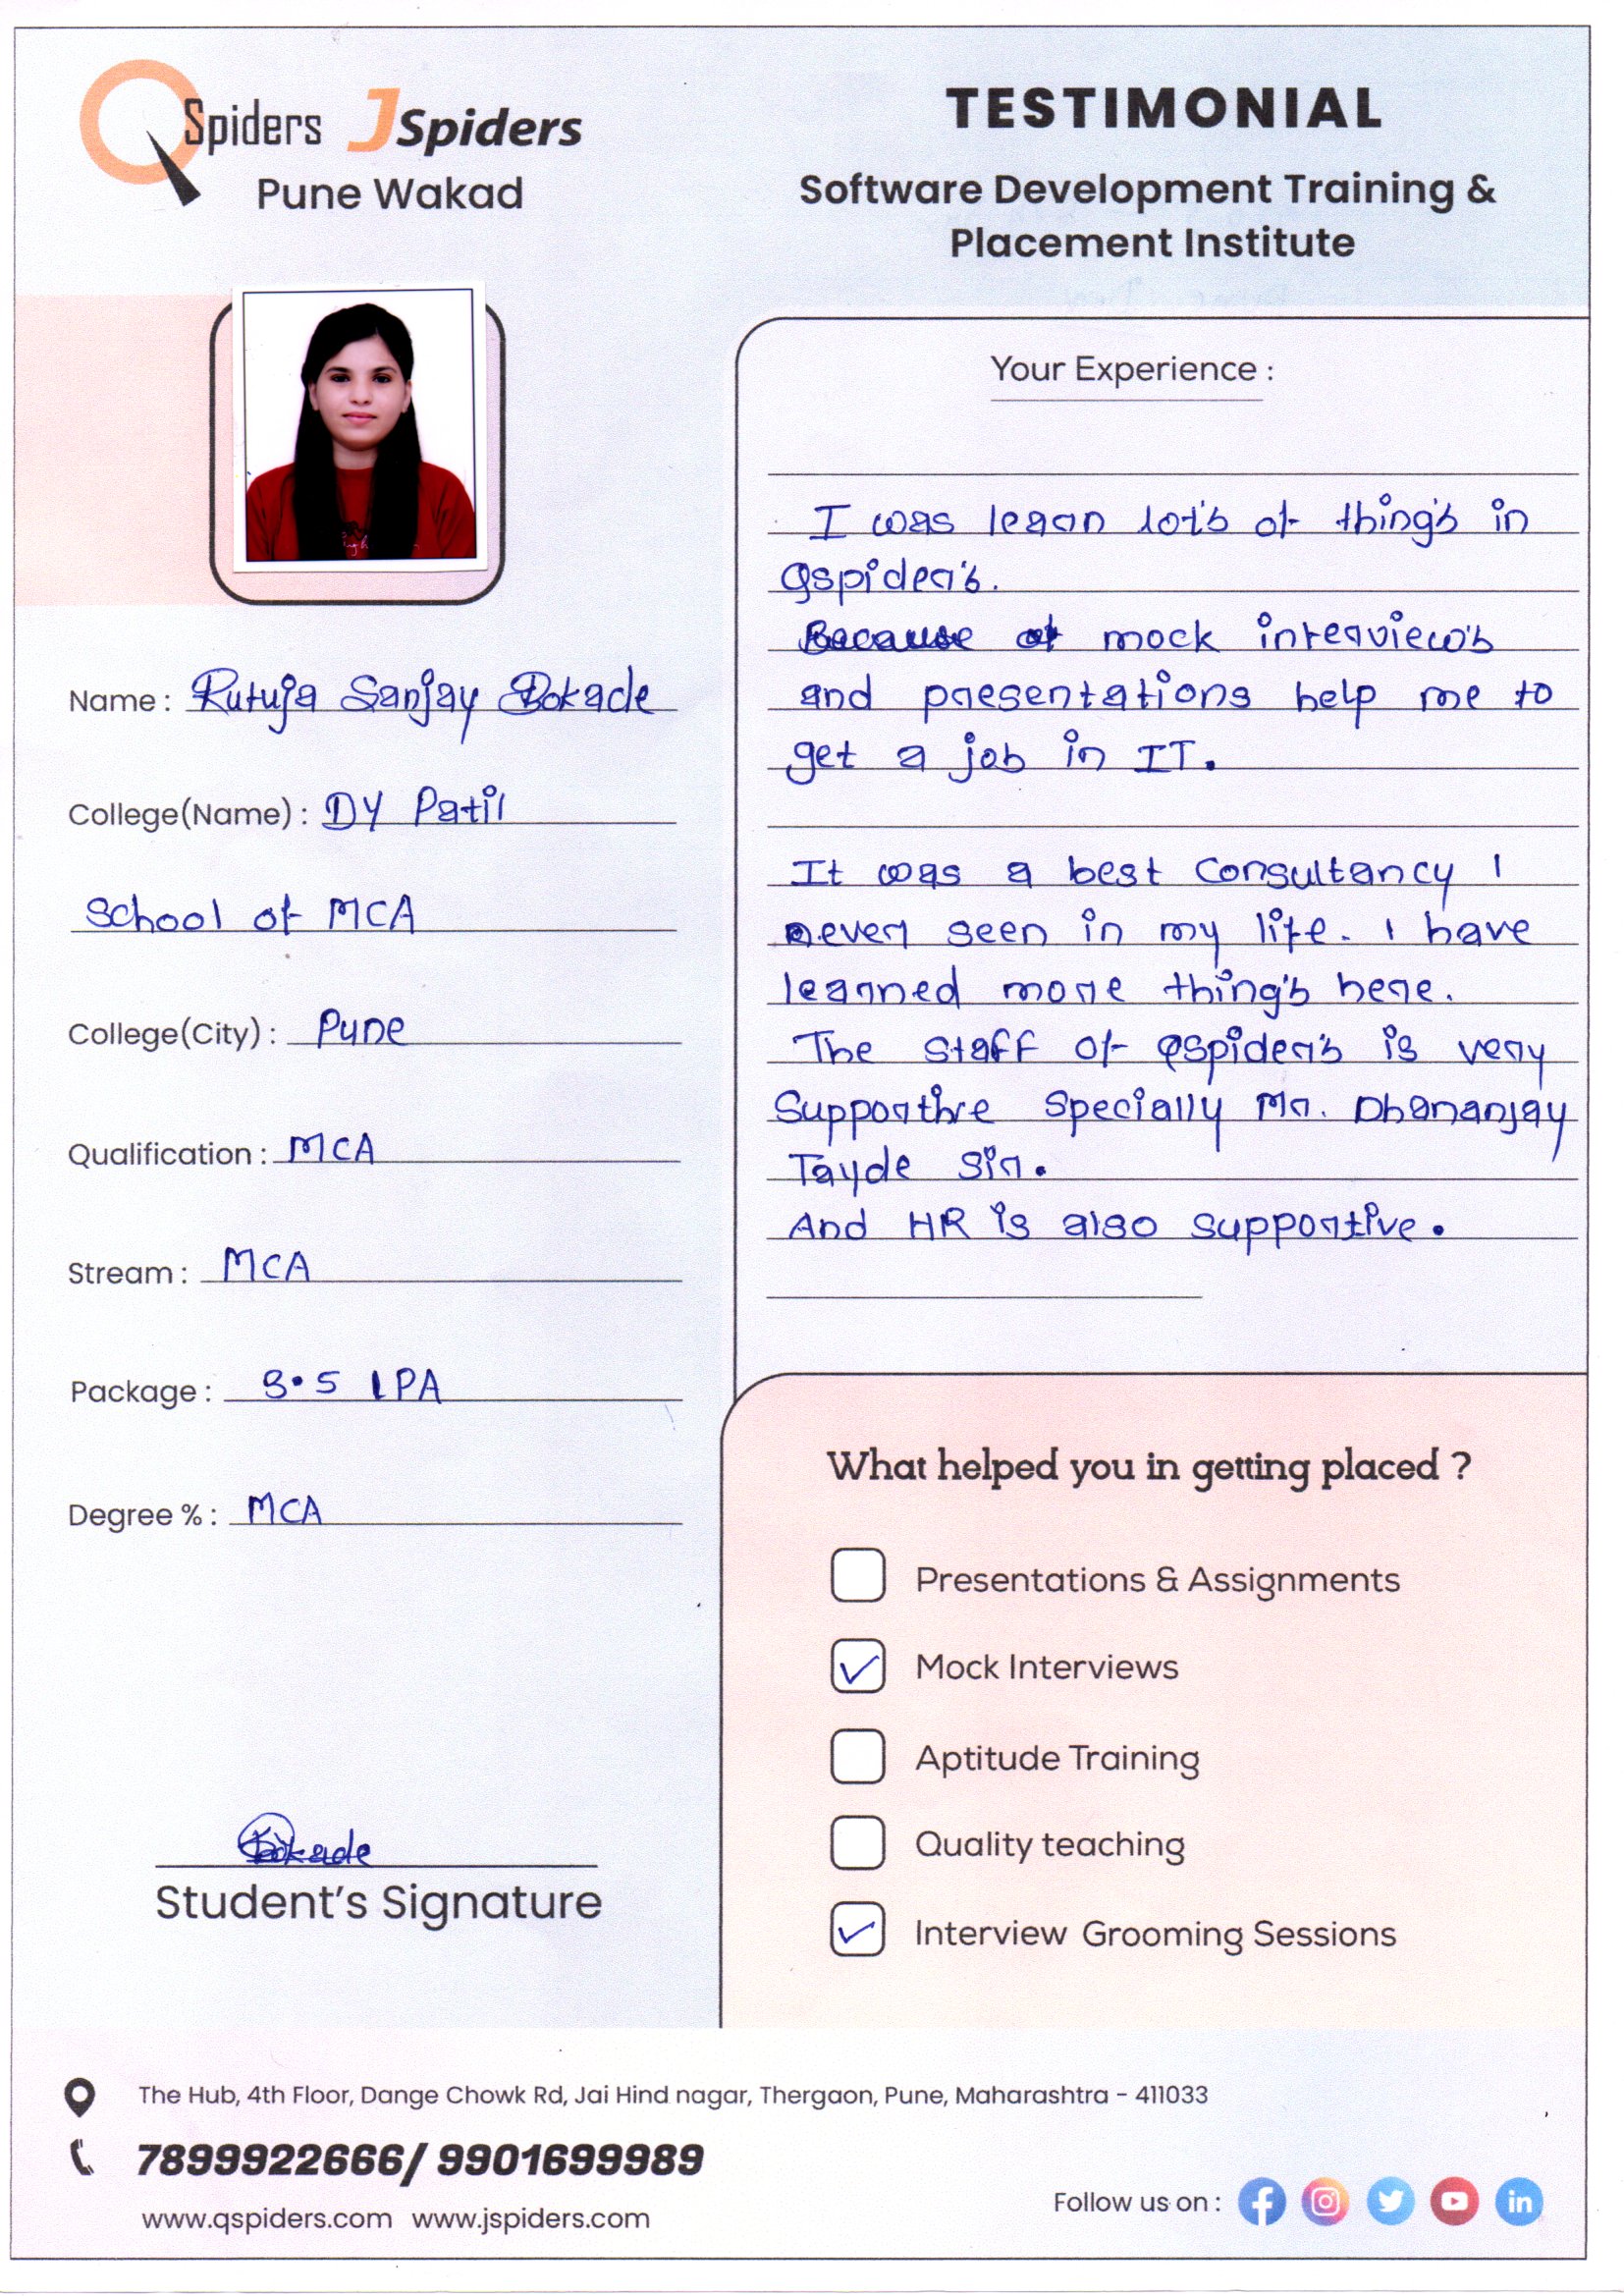 QSpiders JSpiders
Pune Wakad
TESTIMONIAL
Software Development Training &
Placement Institute
Name : Rutuja Sanjay Bokade
College(Name) : DY Patil
School of MCA
College(City) : Pune
Qualification : MCA
Stream : MCA
Package : 3.5 LPA
Degree % : MCA
Bokade
Student's Signature
Your Experience :
I was learn lot's of thing's in
Qspider's.
Because of mock interview's
and presentations help me to
get a job in IT.
It was a best Consultancy I
never seen in my life. I have
learned more thing's here.
The staff of Qspider's is very
Supportive Specially Mr. Dhananjay
Tayde Sir.
And HR is also supportive.
What helped you in getting placed ?
Presentations & Assignments
✓ Mock Interviews
Aptitude Training
Quality teaching
✓ Interview Grooming Sessions
The Hub, 4th Floor, Dange Chowk Rd, Jai Hind nagar, Thergaon, Pune, Maharashtra - 411033
7899922666/ 9901699989
www.qspiders.com www.jspiders.com
Follow us on :